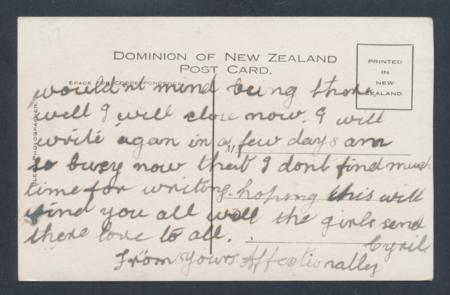 DOMINION OF NEW ZEALAND
POST CARD.
PRINTED
IN
NEW
ZEALAND.
SPACE FOR CORRESPONDENCE
wouldnt mind being there
well I will close now. I will
write again in a few days am
so busy now that I dont find much
time for writing. hoping this will
find you all well the girls send
there love to all.
Cyril
From yours Affectionally